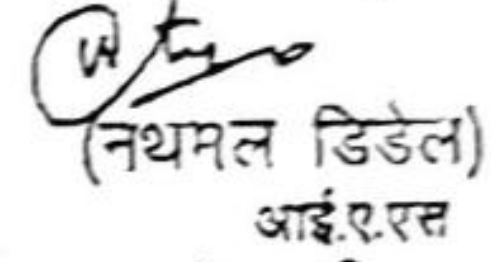 (नथमल डिडेल)
आई.ए.एस